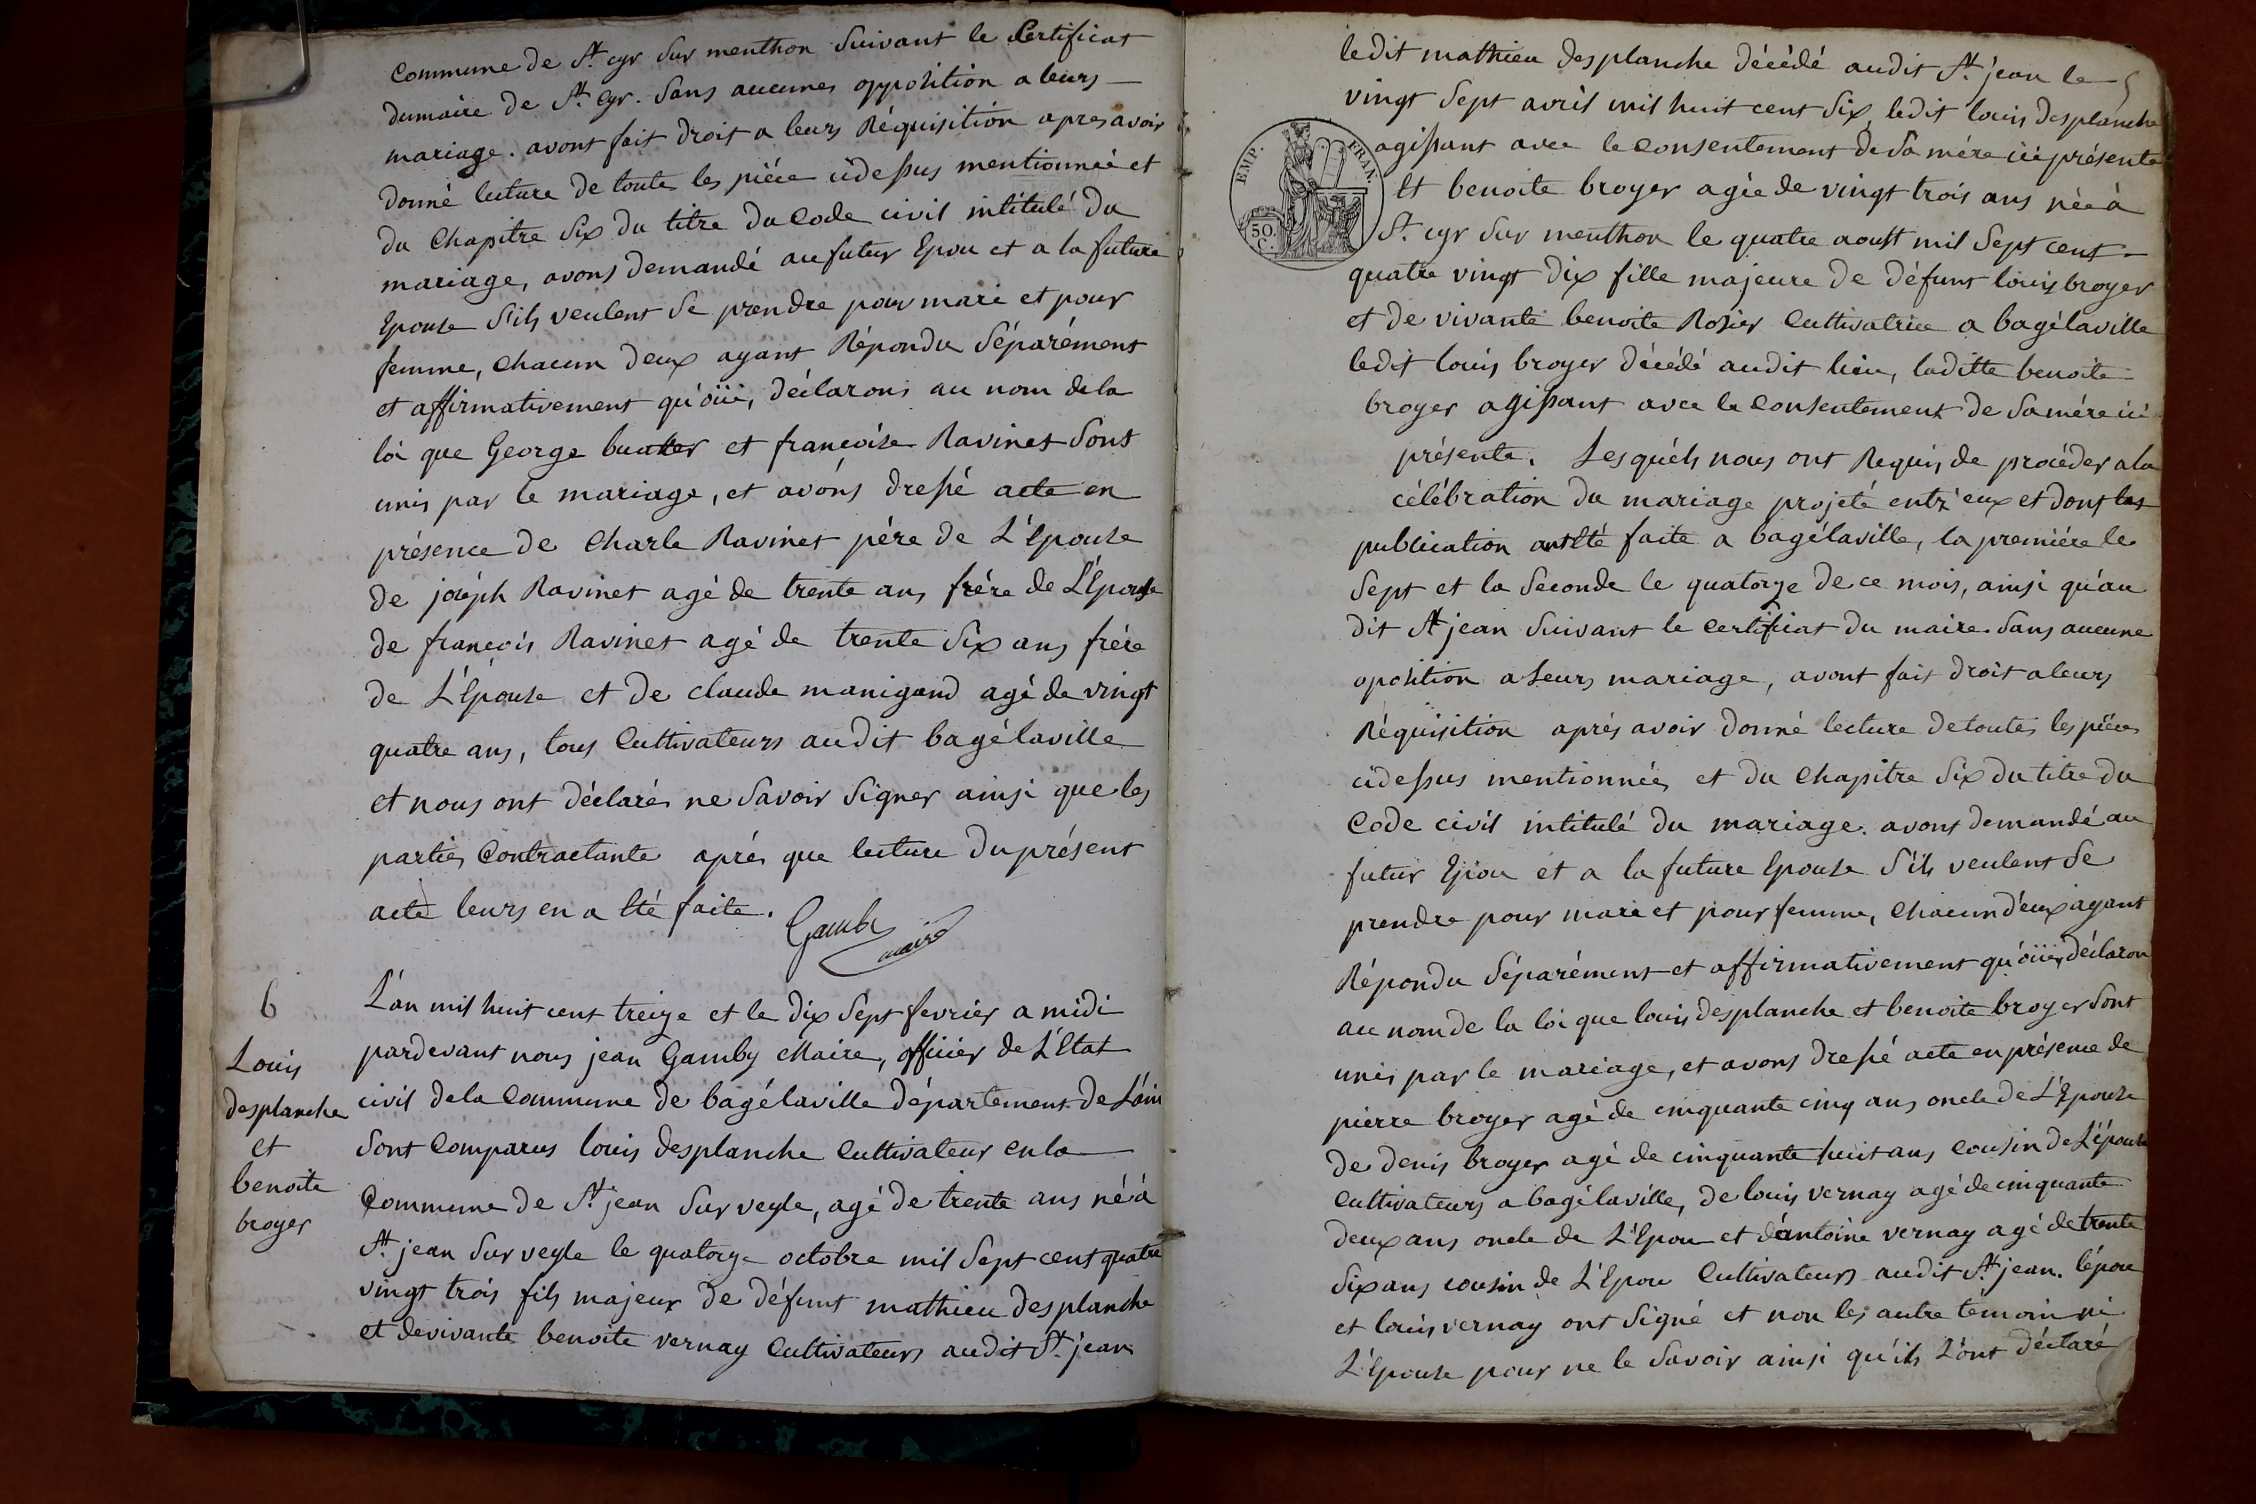 Commune de St. cyr Sur menthon Suivant le Certificat
dumaire de St. Cyr. Sans aucunes opposition a leurs
mariage. avont fait droit a leurs Réquisition apres avoir
donné lecture de toute les piéce cidessus mentionnée et
du Chapitre Six du titre du Code civil intitulé du
mariage, avons demandé au futur Epou et a la future
Epouse S'ils veulent Se prendre pour mari et pour
femme, chacun deux ayant Répondu Séparément
et affirmativement qu'öüi, déclarons au nom dela
loi que George buater et françoise Ravinet Sont
unis par le mariage, et avons dressé acte en
présence de Charle Ravinet pére de L'Epouse
de joseph Ravinet agé de trente ans frére de L'Épouse
de françois Ravinet agé de trente Six ans frére
de L'Épouse et de claude manigand agé de vingt
quatre ans, tous Cultivateurs audit bagélaville
et nous ont déclarés ne Savoir Signer ainsi que les
parties Contractante aprés que lecture du présent
acte leurs en a Eté faite.
Gamby
maire
6
Louis
desplanche
et
benoite
broyer
L'an mil huit cent treize et le dix Sept fevrier a midi
pardevant nous jean Gamby Maire, officier de L'Etat
civil dela Commune de bagélaville département de L'ain
Sont Comparus louis desplanche Cultivateur en la
Commune de St. jean Sur veyle, agé de trente ans né à
St. jean Sur veyle le quatorze octobre mil Sept cent quatre
vingt trois fils majeur de défunt mathieu desplanche
et devivante benoite vernay Cultivateurs audit St. jean
5
ledit mathieu desplanche décédé audit St. jean le
vingt Sept avril mil huit cent Six, ledit louis desplanche
agissant avec le Consentement de Sa mére ici présente
EMP. FRAN.
50.
C.
Et benoite broyer agée de vingt trois ans née à
St. cyr Sur menthon le quatre aoust mil Sept cent
quatre vingt dix fille majeure de défunt louis broyer
et de vivante benoite Rosier Cultivatrice a bagélaville
ledit louis broyer décédé audit lieu, laditte benoite
broyer agissant avec le Consentement de Samére ici
présente. Lesquéls nous ont Requis de procéder ala
célébration du mariage projeté entr'eux et dont les
publication ont Eté faite a bagélaville, la premiére le
Sept et la Seconde le quatorze de ce mois, ainsi qu'au
dit St jean Suivant le Certificat du maire. Sans aucune
oposition a Leurs mariage, avont fait droit aleurs
Réquisition aprés avoir donné lecture detoutes les piéces
cidessus mentionnées et du Chapitre Six du titre du
Code civil intitulé du mariage. avons demandé au
futur Epou et a la future Epouse S'ils veulent Se
prendre pour mari et pour femme, Chacun d'eux ayant
Répondu Séparément et affirmativement qu'öüi, déclaron
au nom de la loi que louis desplanche et benoite broyer Sont
unis par le mariage, et avons dressé acte en présence de
pierre broyer agé de cinquante cinq ans oncle de L'Epouse
de denis broyer agé de cinquante huit ans Cousin de L'épouse
Cultivateurs a bagélaville, de louis vernay agé de cinquante
deux ans oncle de L'Epou et d'antoine vernay agé de trente
Six ans cousin de L'Epou Cultivateurs audit St. jean. l'épou
et louis vernay ont Signé et non les autre témoin ni
L'Epouse pour ne le Savoir ainsi qu'ils L'ont déclaré